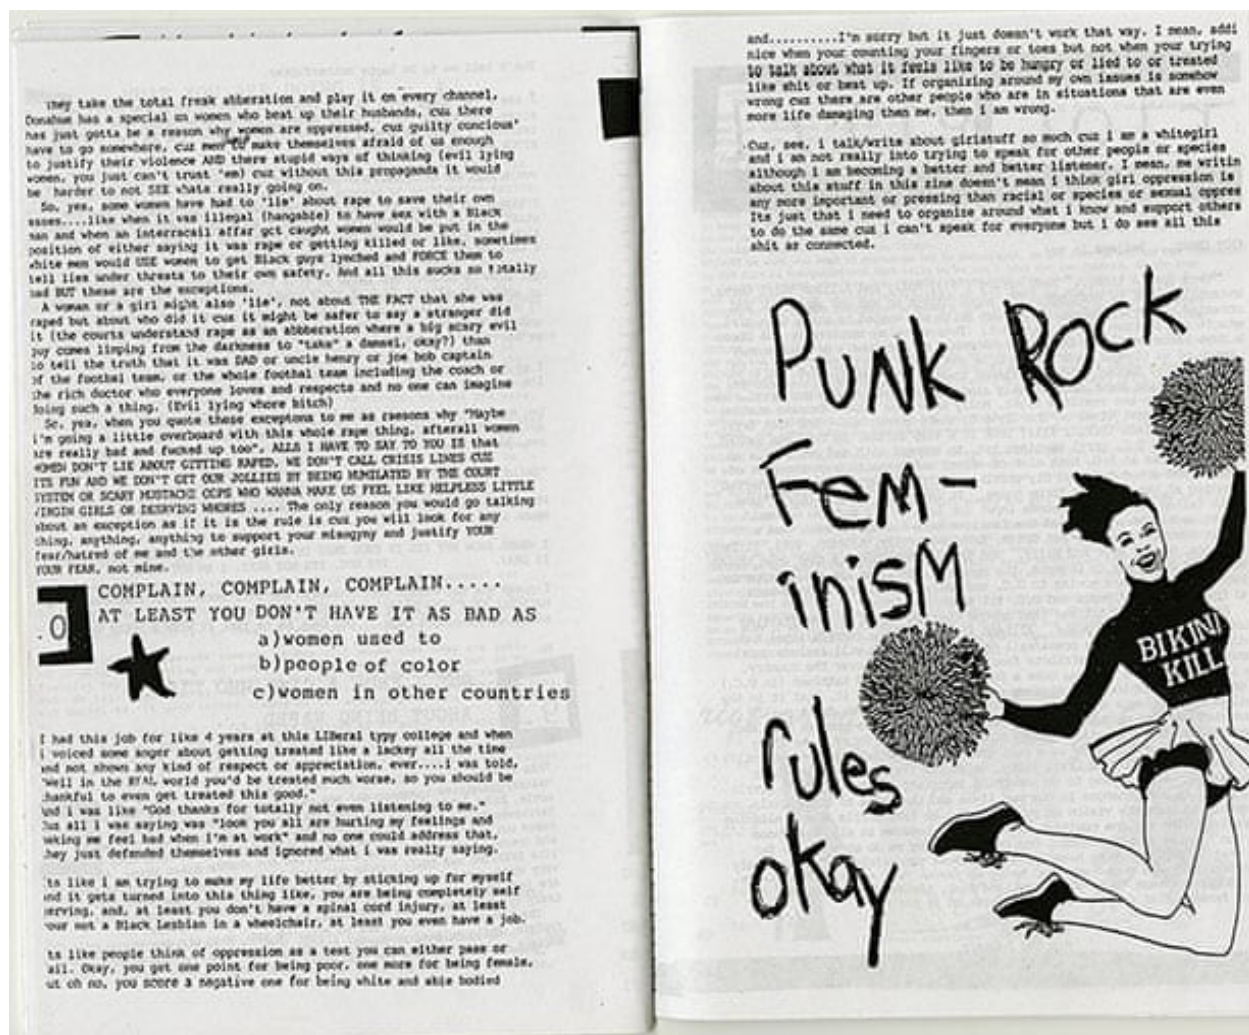 they take the total freak abberation and play it on every channel,
Donahue has a special on women who beat up their husbands, cus there
has just gotta be a reason why women are oppressed, cuz guilty concious'
have to go somewhere, cuz men to make themselves afraid of us enough
to justify their violence AND there stupid ways of thinking (evil lying
women, you just can't trust 'em) cuz without this propaganda it would
be harder to not SEE whats really going on.
So, yes, some women have had to 'lie' about rape to save their own
asses....like when it was illegal (hangable) to have sex with a Black
man and when an interracail affar got caught women would be put in the
position of either saying it was rape or getting killed or like, sometimes
white men would USE women to get Black guys lynched and FORCE them to
tell lies under threats to their own safety. And all this sucks so totally
bad BUT these are the exceptions.
A woman or a girl might also 'lie', not about THE FACT that she was
raped but about who did it cus it might be safer to say a stranger did
it (the courts understand rape as an abbberation where a big scary evil
guy comes limping from the darkness to "take" a damsel, okay?) than
to tell the truth that it was DAD or uncle henry or joe bob captain
of the footbal team, or the whole footbal team including the coach or
the rich doctor who everyone loves and respects and no one can imagine
doing such a thing. (Evil lying whore bitch)
So, yea, when you quote these exceptons to me as raesons why "Maybe
i'm going a little overboard with this whole rape thing, afterall women
are really bad and fucked up too", ALLS I HAVE TO SAY TO YOU IS that
WOMEN DON'T LIE ABOUT GITTING RAPED, WE DON'T CALL CRISIS LINES CUZ
ITS FUN AND WE DON'T GET OUR JOLLIES BY BEING HUMILATED BY THE COURT
SYSTEM OR SCARY MUSTACHE COPS WHO WANNA MAKE US FEEL LIKE HELPLESS LITTLE
VIRGIN GIRLS OR DESERVING WHORES .... The only reason you would go talking
about an exception as if it is the rule is cuz you will look for any
thing, anything, anything to support your misogyny and justify YOUR
fear/hatred of me and the other girls.
YOUR FEAR, not mine.
COMPLAIN, COMPLAIN, COMPLAIN.....
AT LEAST YOU DON'T HAVE IT AS BAD AS
a)women used to
b)people of color
c)women in other countries
I had this job for like 4 years at this LIBeral typy college and when
i voiced some anger about getting treated like a lackey all the time
and not shown any kind of respect or appreciation, ever....i was told,
"Well in the REAL world you'd be treated much worse, so you should be
thankful to even get treated this good."
and i was like "God thanks for totally not even listening to me."
Cuz all i was saying was "look you all are hurting my feelings and
making me feel bad when i'm at work" and no one could address that,
they just defended themselves and ignored what i was really saying.
its like i am trying to make my life better by sticking up for myself
and it gets turned into this thing like, you are being completely self
serving, and, at least you don't have a spinal cord injury, at least
your not a Black Lesbian in a wheelchair, at least you even have a job.
its like people think of oppression as a test you can either pass or
fail. Okay, you get one point for being poor, one more for being female,
but oh no, you score a negative one for being white and able bodied
and..........I'm sorry but it just doesn't work that way. I mean, addi
nice when your counting your fingers or toes but not when your trying
to talk about what it feels like to be hungry or lied to or treated
like shit or beat up. If organizing around my own issues is somehow
wrong cuz there are other people who are in situations that are even
more life damaging then me, then i am wrong.
Cuz, see, i talk/write about girlstuff so much cuz i am a whitegirl
and i am not really into trying to speak for other people or species
although i am becoming a better and better listener. I mean, me writin
about this stuff in this zine doesn't mean i think girl oppression is
any more important or pressing than racial or species or sexual oppres
Its just that i need to organize around what i know and support others
to do the same cuz i can't speak for everyone but i do see all this
shit as connected.
PUNK ROCK
Fem-
inism
rules
okay
BIKINI
KILL